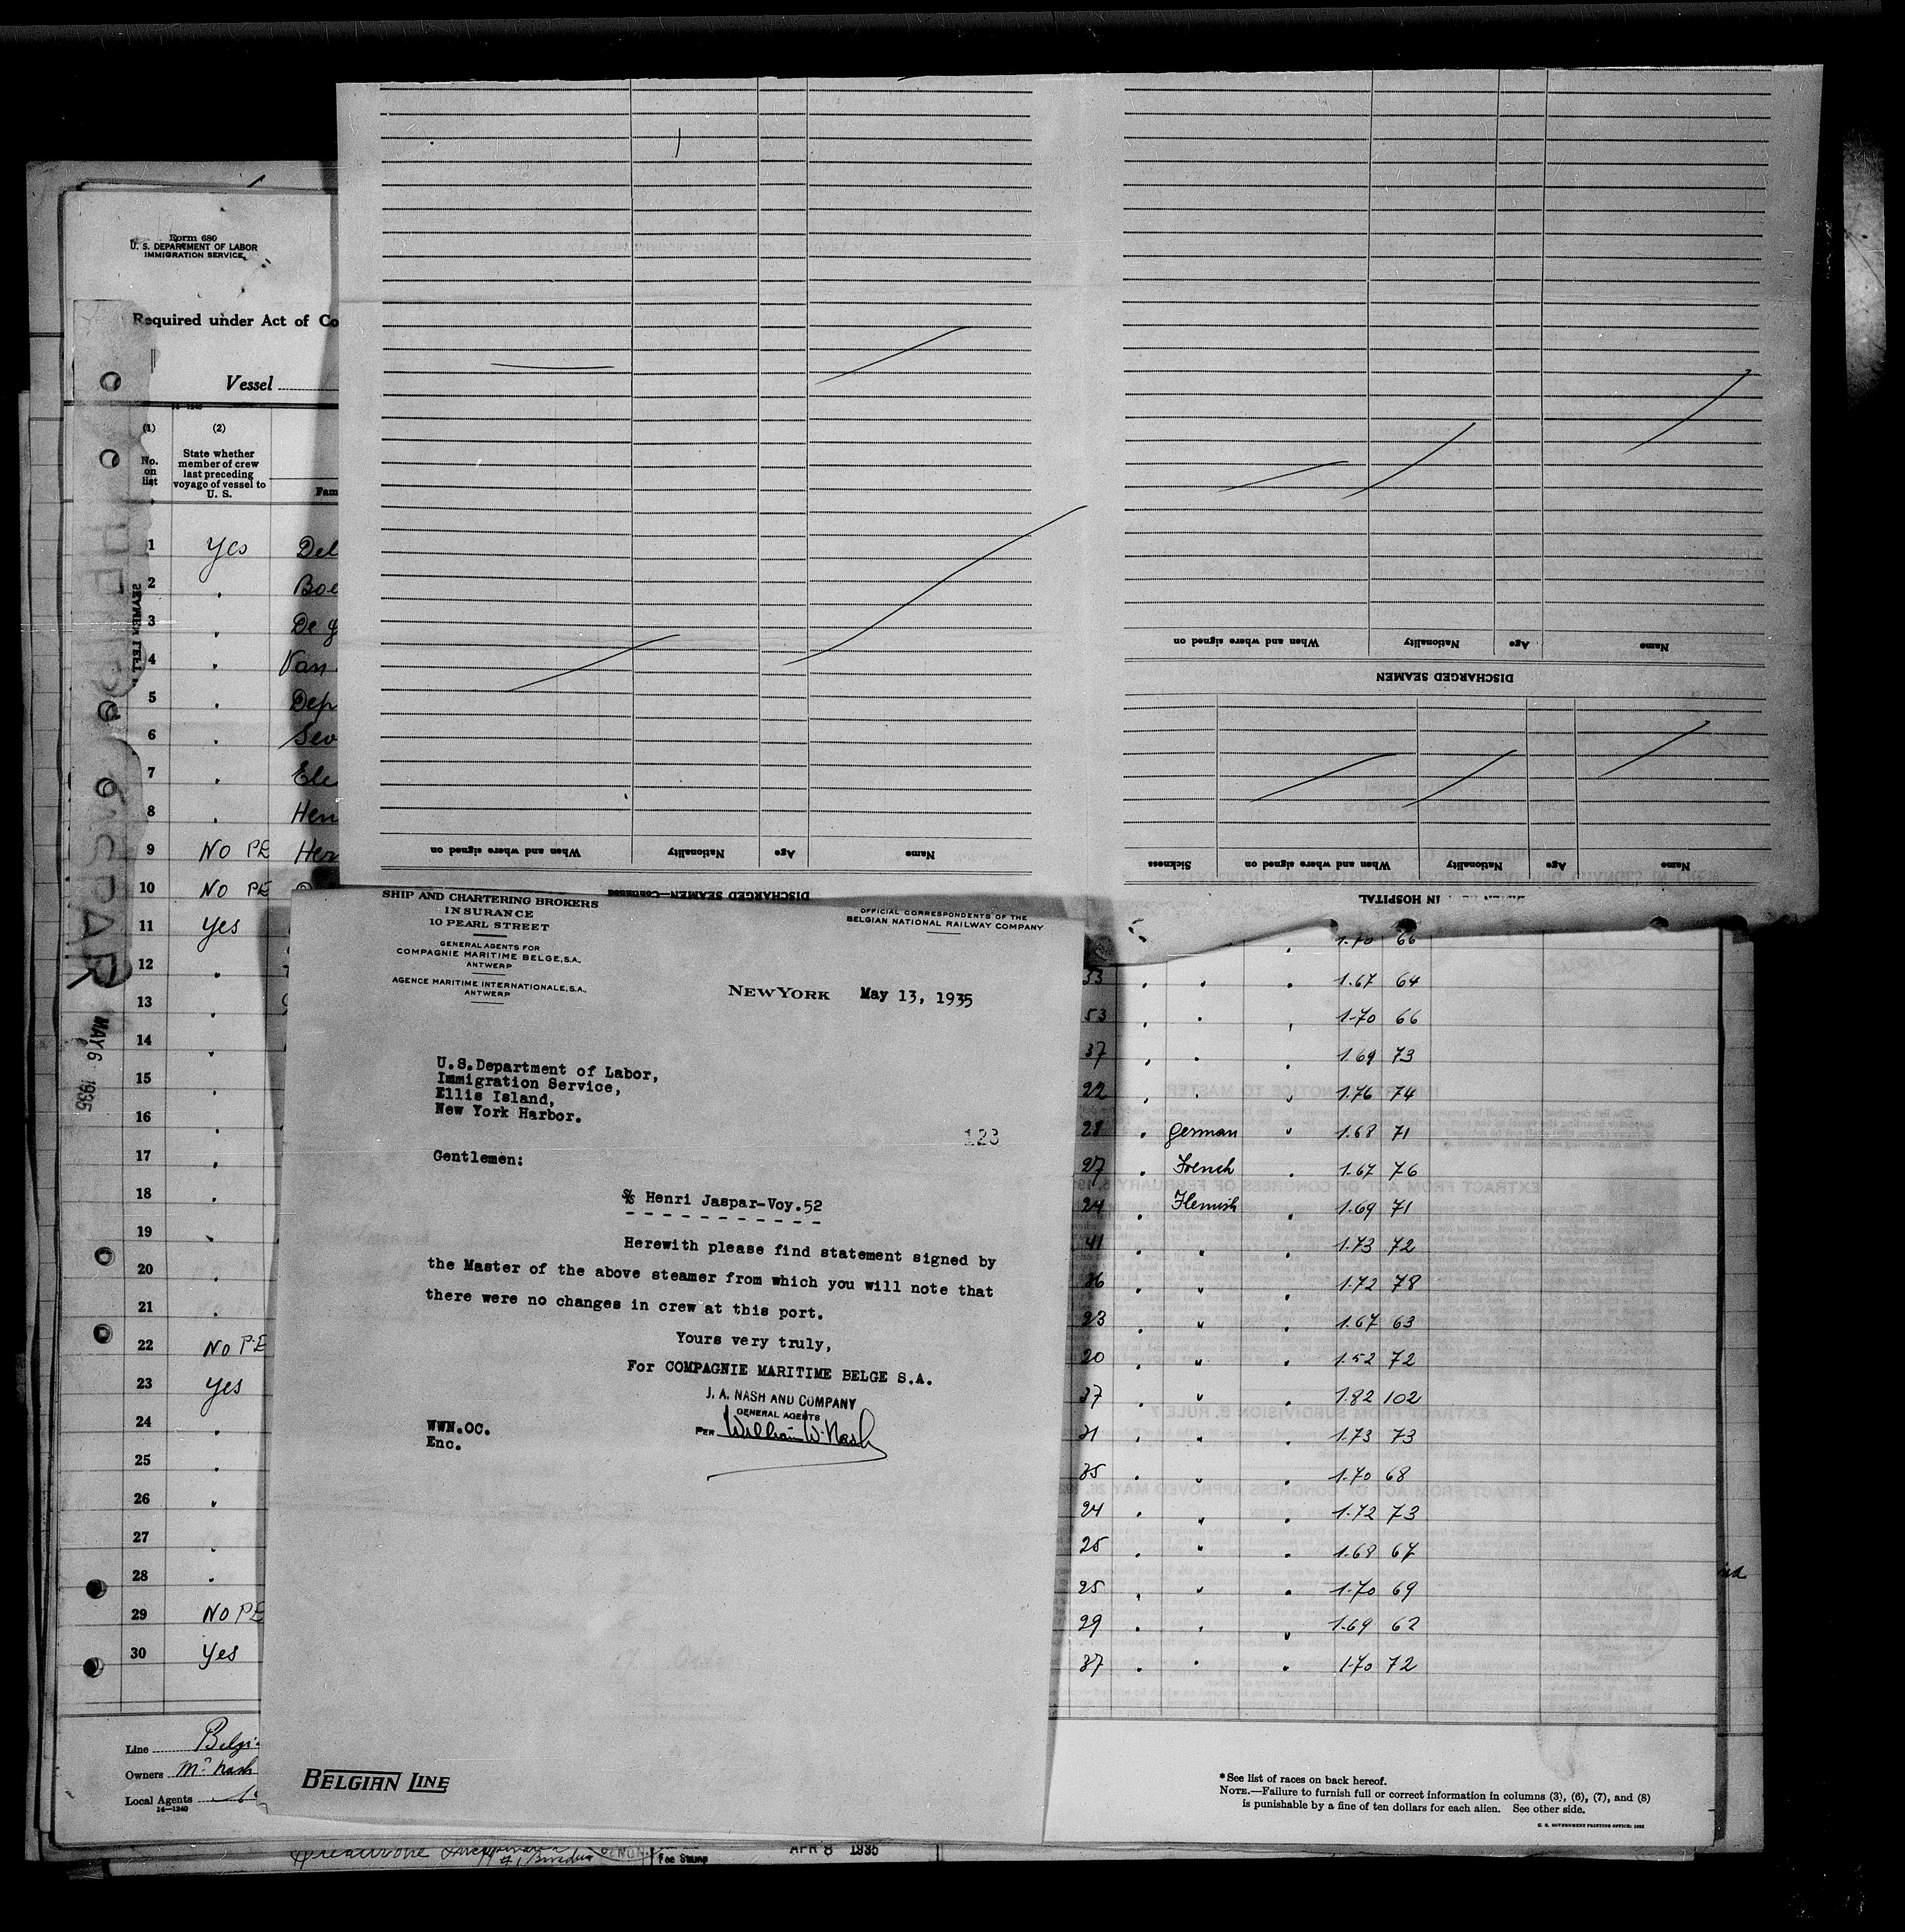 Form 680
U. S. DEPARTMENT OF LABOR
IMMIGRATION SERVICE
Required under Act of Co
Vessel
14—1240
(1) (2)
No. on list
State whether member of crew last preceding voyage of vessel to U. S.
Fam
1 Yes Del
2 " Boe
3 " De
4 " Van
5 " Dep
6 " Sev
7 " Ele
8 " Hen
9 NO PE Her
10 NO PE
11 Yes
12 "
13 "
14 "
15 "
16 "
17 "
18 "
19 "
20 "
21 "
22 NO PE
23 Yes
24 "
25 "
26 "
27 "
28 "
29 NO PE
30 Yes
Line Belgi
Owners Mr Nash
Local Agents
14—1240
JASPAR
MAY 6 1935
Name Age Nationality When and where signed on
DISCHARGED SEAMEN—Continued
Name Age Nationality When and where signed on
DISCHARGED SEAMEN
Name Age Nationality When and where signed on Sickness
IN HOSPITAL
SHIP AND CHARTERING BROKERS
INSURANCE
10 PEARL STREET
GENERAL AGENTS FOR
COMPAGNIE MARITIME BELGE, S.A.
ANTWERP
AGENCE MARITIME INTERNATIONALE, S.A.,
ANTWERP
OFFICIAL CORRESPONDENTS OF THE
BELGIAN NATIONAL RAILWAY COMPANY
NEW YORK May 13, 1935
U.S.Department of Labor,
Immigration Service,
Ellis Island,
New York Harbor.
123
Gentlemen:
S/S Henri Jaspar-Voy.52
- - - - - - - - - - -
Herewith please find statement signed by
the Master of the above steamer from which you will note that
there were no changes in crew at this port.
Yours very truly,
For COMPAGNIE MARITIME BELGE S.A.
J. A. NASH AND COMPANY
GENERAL AGENTS
PER William W. Nash
WWN.OC.
Enc.
BELGIAN LINE
1.70 66
33 " " " 1.67 64
53 " " " 1.70 66
37 " " " 1.69 73
22 " " " 1.76 74
28 " German " 1.68 71
27 " French " 1.67 76
24 " Flemish " 1.69 71
41 " " " 1.73 72
36 " " " 1.72 78
23 " " " 1.67 63
20 " " " 1.52 72
37 " " " 1.82 102
31 " " " 1.73 73
35 " " " 1.70 68
24 " " " 1.72 73
25 " " " 1.68 67
25 " " " 1.70 69
29 " " " 1.69 62
37 " " " 1.70 72
*See list of races on back hereof.
NOTE.—Failure to furnish full or correct information in columns (3), (6), (7), and (8)
is punishable by a fine of ten dollars for each alien. See other side.
U. S. GOVERNMENT PRINTING OFFICE:
Fee Stamp
APR 8 1935